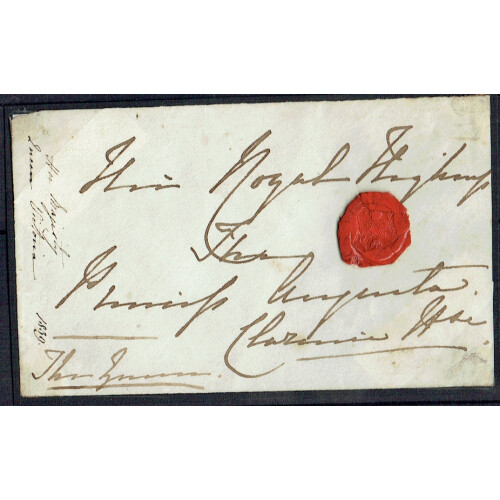 Her Royal Highness
The
Princess Augusta
Clarence Hse
The Queen.
Her Majesty
Queen Victoria
1839